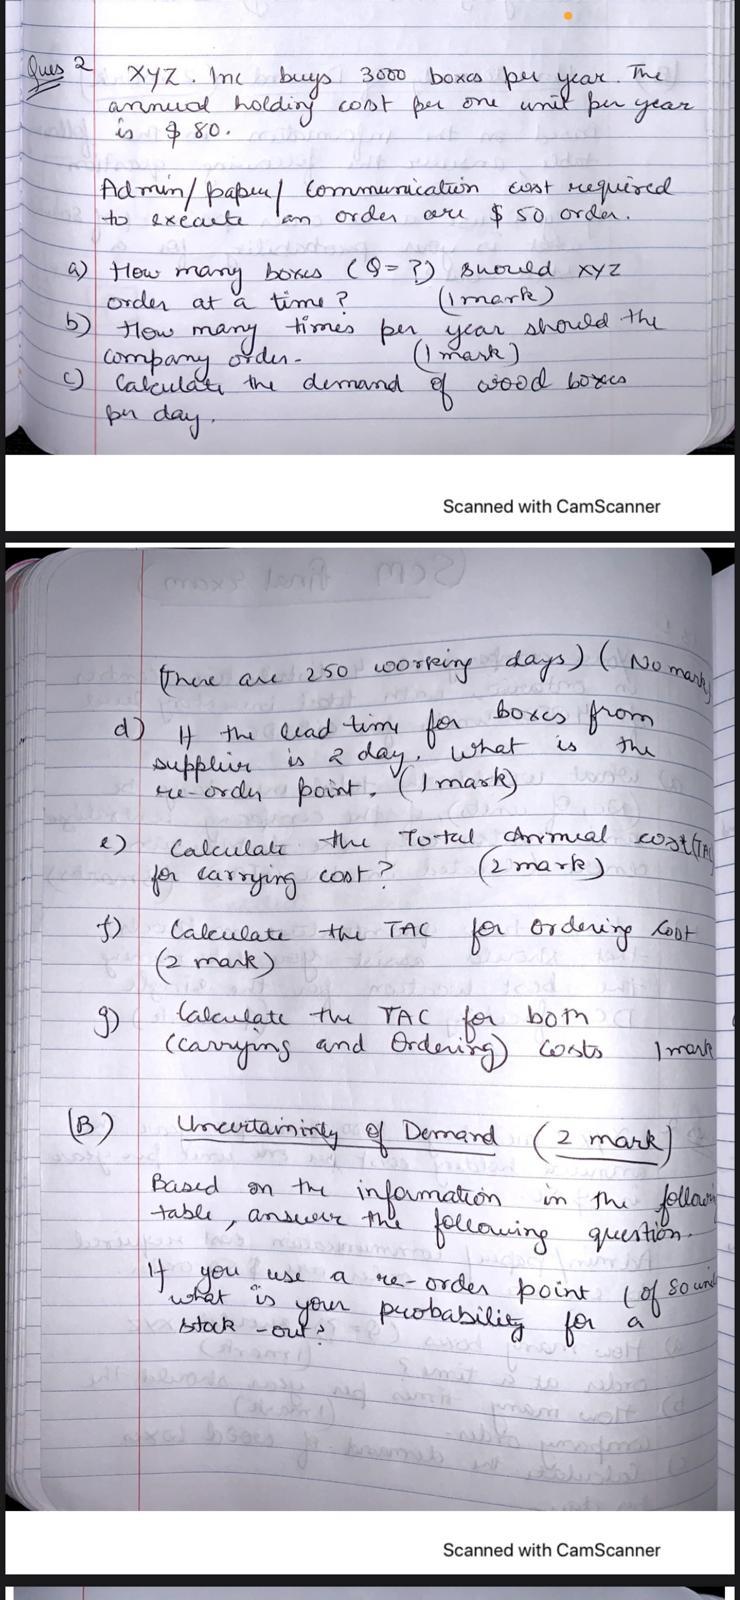 Ques 2 XYZ. Inc buys 3000 boxes per year. The
annual holding cost per one unit per year
is $ 80.
Admin/paper/ communication cost required
to execute an order are $ 50 order.
a) How many boxes (Q = ?) should XYZ
order at a time? (1 mark)
b) How many times per year should the
company order. (1 mark)
c) Calculate the demand of wood boxes
per day.
Scanned with CamScanner
(There are 250 working days) (No mark
d) If the lead time for boxes from
supplier is 2 day. What is the
re-order point. (1 mark)
e) Calculate the Total Annual cost (TA
for carrying cost? (2 mark)
f) Calculate the TAC for ordering cost
(2 mark)
g) Calculate the TAC for both
(carrying and Ordering) costs 1 mark
(B) Uncertaininty of Demand (2 mark)
Based on the information in the follow
table, answer the following question.
If you use a re-order point (of 80 uni
what is your probability for a
stock-out?
Scanned with CamScanner